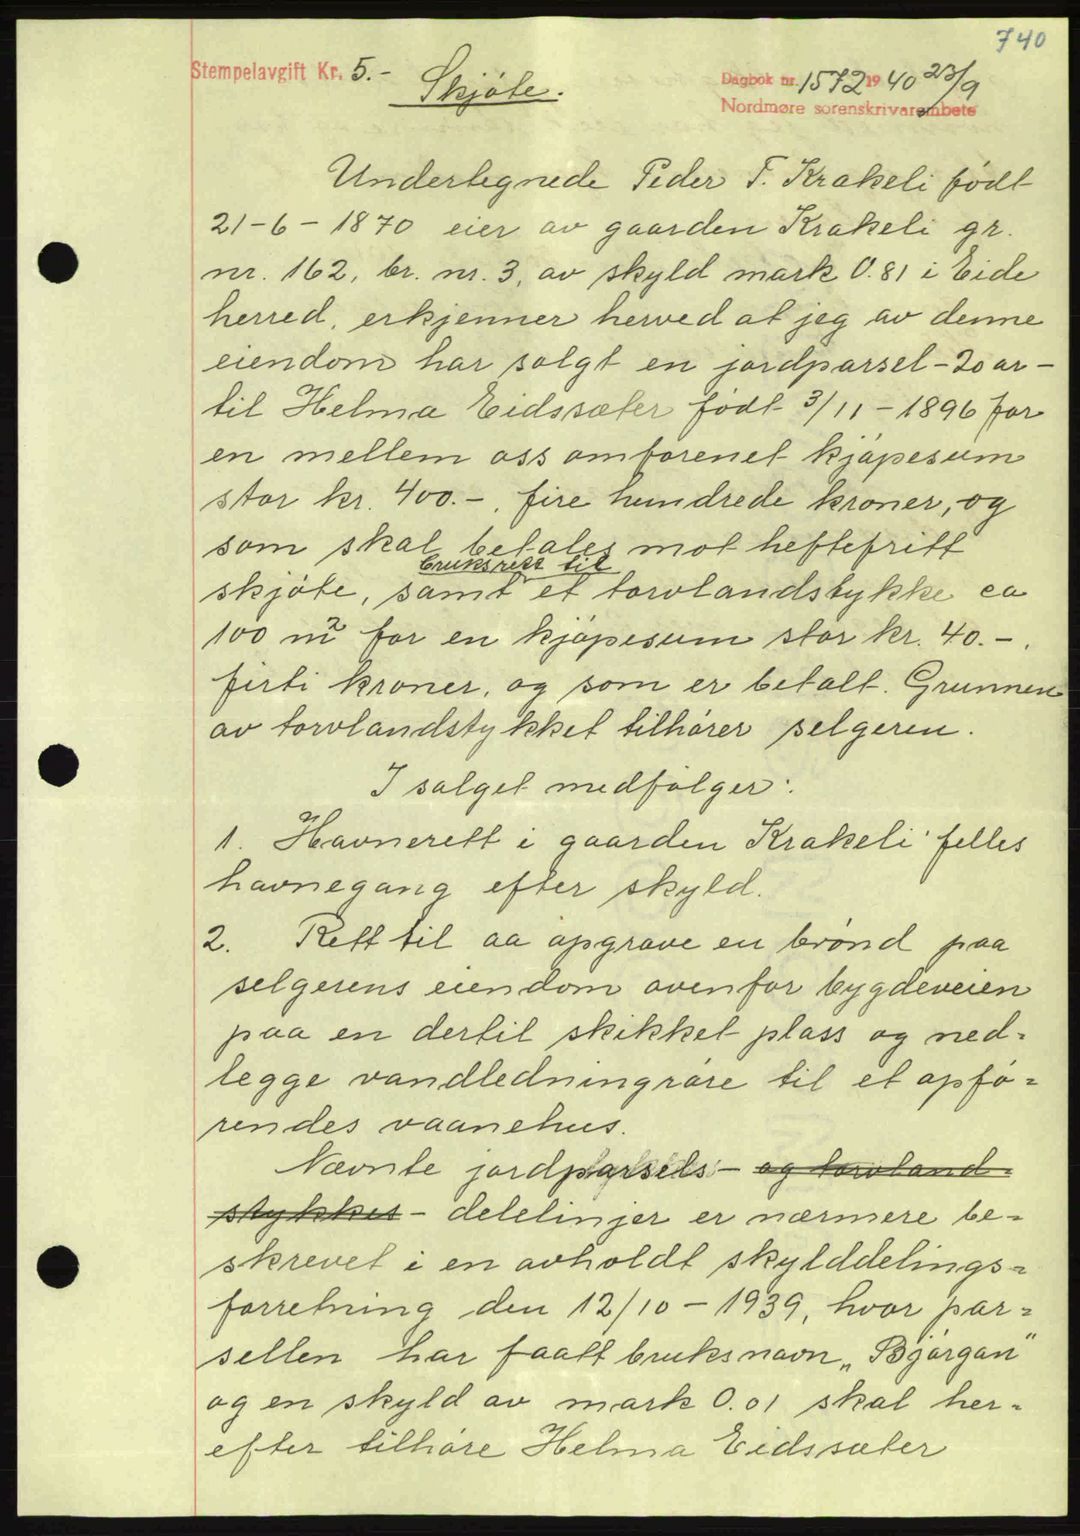 740
Stempelavgift Kr. 5.-
Skjøte.
Dagbok nr. 1572 1940 23/9
Nordmøre sorenskrivarembete
Undertegnede Peder T. Krakeli født
21-6-1870 eier av gaarden Krakeli gr.
nr. 162, br. nr. 3, av skyld mark 0.81 i Eide
herred, erkjenner herved at jeg av denne
eiendom har solgt en jordparsel - 20 ar -
til Helma Eidssæter født 3/11-1896 for
en mellem oss omforenet kjøpesum
stor kr. 400.-, fire hundrede kroner, og
som skal betales mot heftefritt
bruksrett til
skjøte, samt et torvlandstykke ca
100 m² for en kjøpesum stor kr. 40.-,
firti kroner, og som er betalt. Grunnen
av torvlandstykket tilhører selgeren.
I salget medfølger:
1. Havnerett i gaarden Krakeli felles
havnegang efter skyld.
2. Rett til aa opgrave en brønd paa
selgerens eiendom ovenfor bygdeveien
paa en dertil skikket plass og ned=
legge vandledningrøre til et opfø=
rendes vaanehus.
Nævnte jordparsels - og torvland=
stykkes - delelinjer er nærmere be=
skrevet i en avholdt skylddelings=
forretning den 12/10-1939, hvor par=
sellen har faatt bruksnavn „Bjørgan"
og en skyld av mark 0.01 skal her=
efter tilhøre Helma Eidssæter